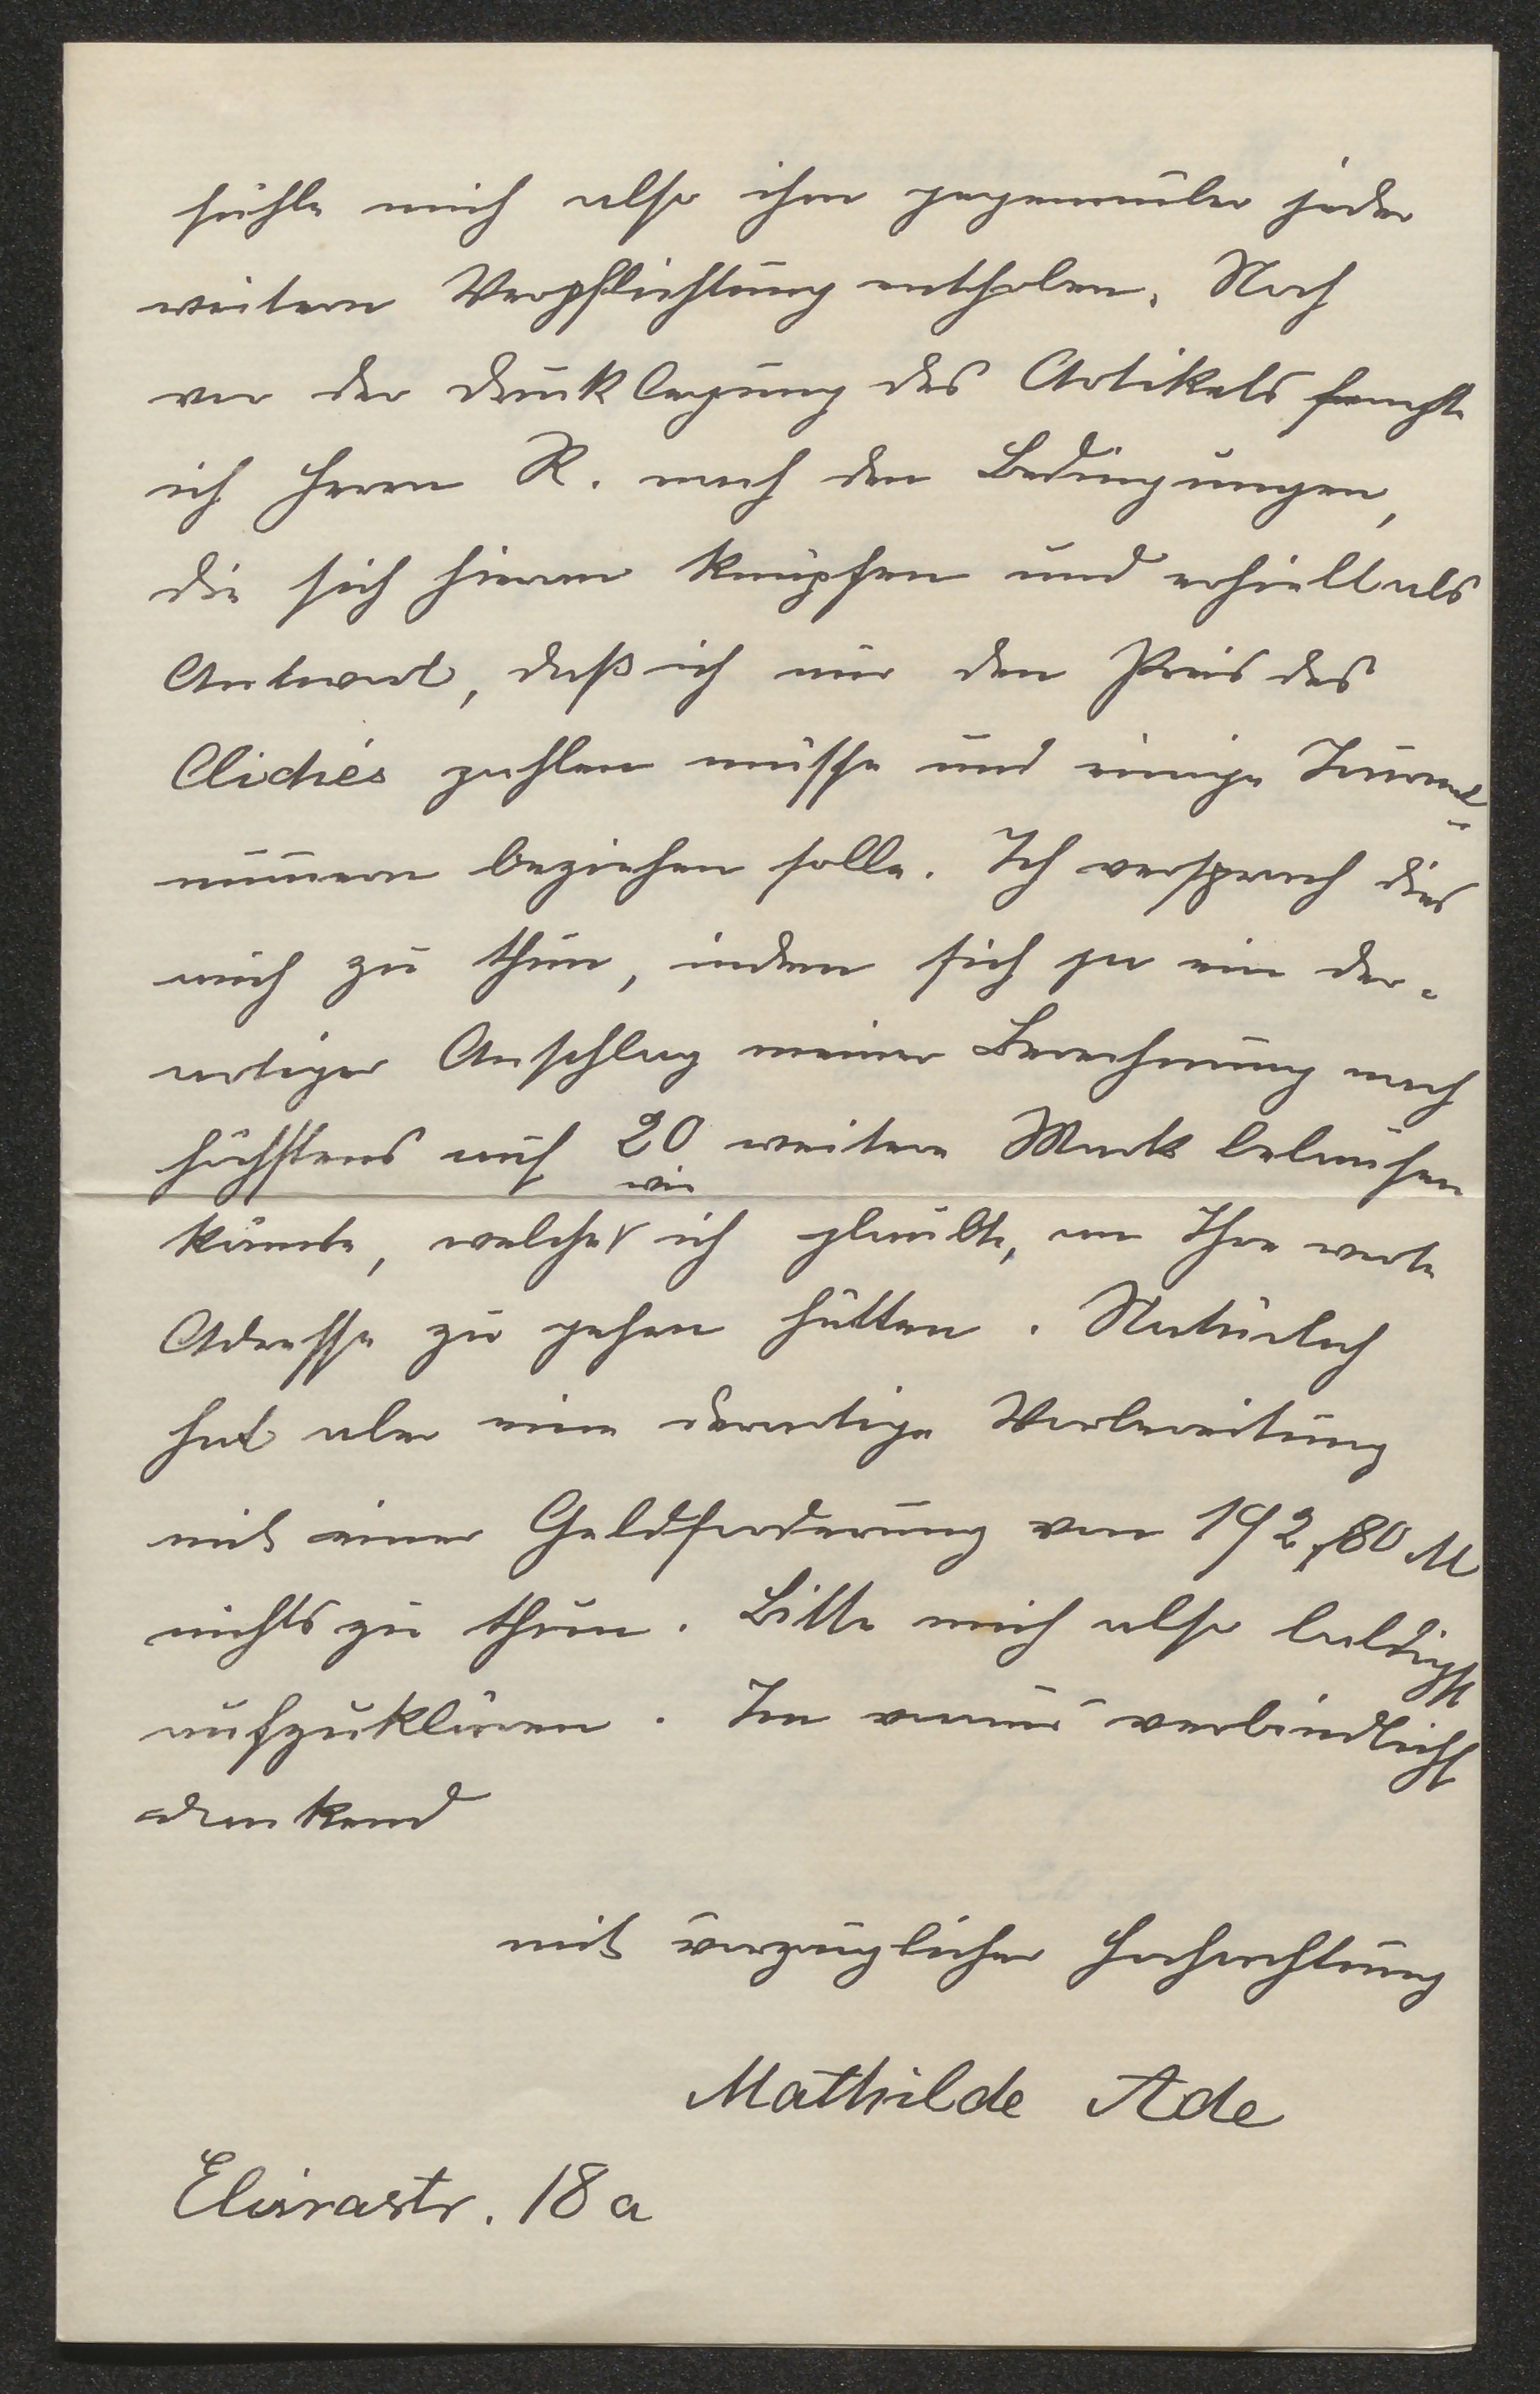 fühle mich also ihm gegenüber jeder
weitern Verpflichtung enthoben. Noch
vor der Drucklegung des Artikels frug
ich Herrn R. nach den Bedingungen,
die sich hieran knüpfen und erhielt als
Antwort, daß ich nur den Preis des
Clichés zahlen müsse und einige Journal-
nummern beziehen solle. Ich versprach dies
auch zu thun, indem sich ja ein der-
artiger Anschlag meiner Berechnung nach
höchstens auf 20 weitere Mark belaufen
könnte, welche, wie ich glaubte, an Ihre werte
Adresse zu gehen hätten. Natürlich
hat aber eine derartige Vorbereitung
mit einer Geldforderung von 192,80 M
nichts zu thun. Bitte mich also baldigst
aufzuklären. Im voraus verbindlichst
dankend
mit vorzüglicher Hochachtung
Mathilde Ade
Elvirastr. 18 a